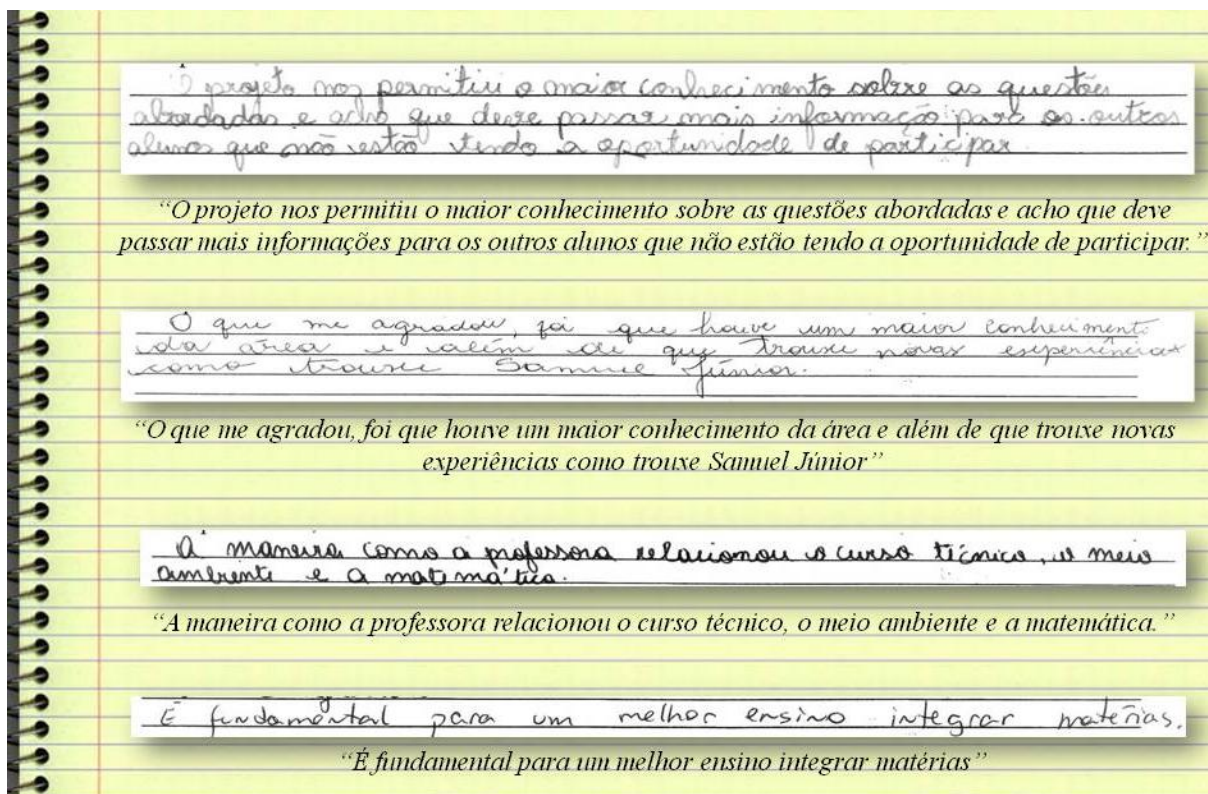 O projeto nos permitiu o maior conhecimento sobre as questões
abordadas e acho que deve passar mais informação para os outros
alunos que não estão tendo a oportunidade de participar.
“O projeto nos permitiu o maior conhecimento sobre as questões abordadas e acho que deve
passar mais informações para os outros alunos que não estão tendo a oportunidade de participar.”
O que me agradou, foi que houve um maior conhecimento
da área e além de que trouxe novas esperiências
como trouxe Samue Júnior.
“O que me agradou, foi que houve um maior conhecimento da área e além de que trouxe novas
experiências como trouxe Samuel Júnior”
A maneira como a professora relacionou o curso técnico, o meio
ambiente e a matemática.
“A maneira como a professora relacionou o curso técnico, o meio ambiente e a matemática.”
É fundamental para um melhor ensino integrar matérias.
“É fundamental para um melhor ensino integrar matérias”